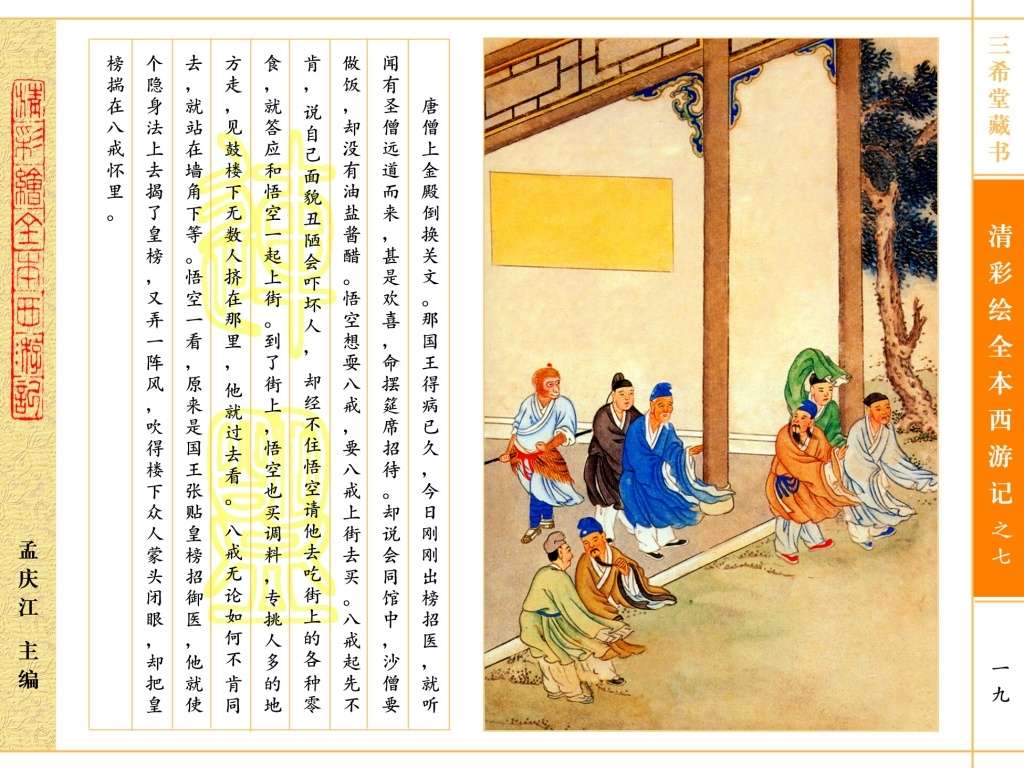 三希堂藏书
清彩绘全本西游记之七
一九
唐僧上金殿倒换关文。那国王得病已久，今日刚刚出榜招医，就听
闻有圣僧远道而来，甚是欢喜，命摆筵席招待。却说会同馆中，沙僧要
做饭，却没有油盐酱醋。悟空想耍八戒，要八戒上街去买。八戒起先不
肯，说自己面貌丑陋会吓坏人，却经不住悟空请他去吃街上的各种零
食，就答应和悟空一起上街。到了街上，悟空也买调料，专挑人多的地
方走，见鼓楼下无数人挤在那里，他就过去看。八戒无论如何不肯同
去，就站在墙角下等。悟空一看，原来是国王张贴皇榜招御医，他就使
个隐身法上去揭了皇榜，又弄一阵风，吹得楼下众人蒙头闭眼，却把皇
榜揣在八戒怀里。
清彩繪全本西游記
孟庆江 主编